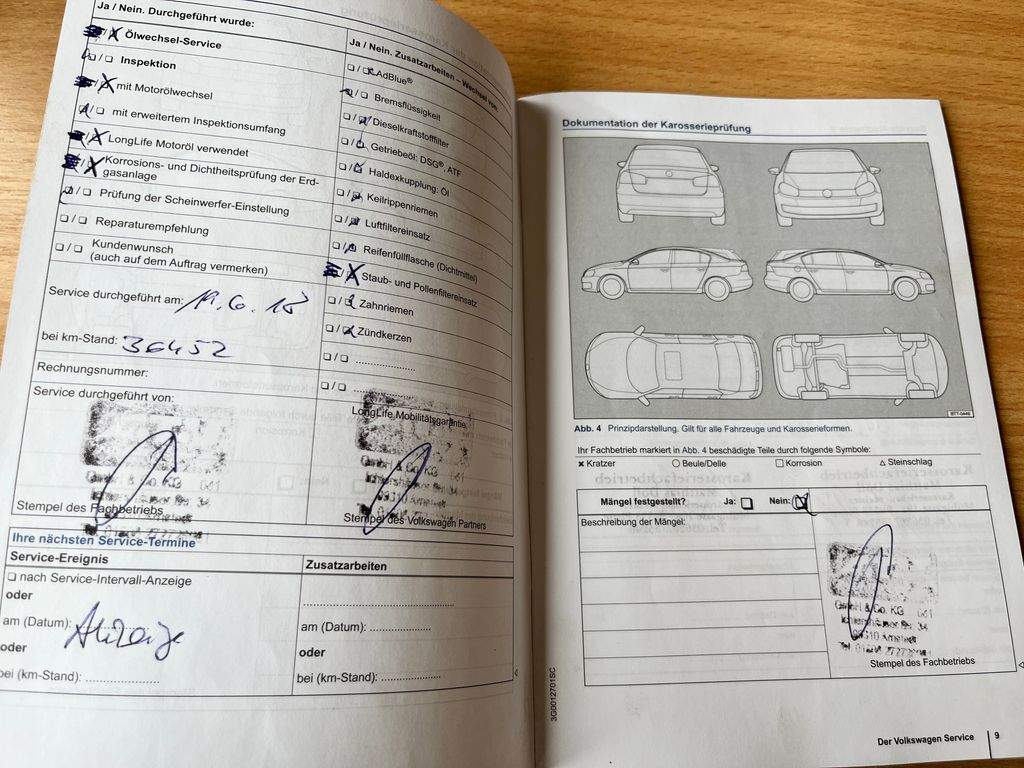 Ja / Nein. Durchgeführt wurde:
❏ / ❏ Ölwechsel-Service
❏ / ❏ Inspektion
❏ / ❏ mit Motorölwechsel
❏ / ❏ mit erweitertem Inspektionsumfang
❏ / ❏ LongLife Motoröl verwendet
❏ / ❏ Korrosions- und Dichtheitsprüfung der Erd-
gasanlage
❏ / ❏ Prüfung der Scheinwerfer-Einstellung
❏ / ❏ Reparaturempfehlung
❏ / ❏ Kundenwunsch
(auch auf dem Auftrag vermerken)
Service durchgeführt am: 19.6.18
bei km-Stand: 36452
Rechnungsnummer:
Service durchgeführt von:
GmbH & Co. KG 061
Stempel des Fachbetriebs
Ja / Nein. Zusatzarbeiten – Wechsel von:
❏ / ❏ AdBlue®
❏ / ❏ Bremsflüssigkeit
❏ / ❏ Dieselkraftstofffilter
❏ / ❏ Getriebeöl: DSG®, ATF
❏ / ❏ Haldexkupplung: Öl
❏ / ❏ Keilrippenriemen
❏ / ❏ Luftfiltereinsatz
❏ / ❏ Reifenfüllflasche (Dichtmittel)
❏ / ❏ Staub- und Pollenfiltereinsatz
❏ / ❏ Zahnriemen
❏ / ❏ Zündkerzen
❏ / ❏ ....................
❏ / ❏ ....................
LongLife Mobilitätsgarantie:
GmbH & Co KG
Stempel des Volkswagen Partners
Ihre nächsten Service-Termine
Service-Ereignis
❏ nach Service-Intervall-Anzeige
oder
am (Datum): Anzeige
oder
bei (km-Stand): ....................
Zusatzarbeiten
........................................
am (Datum): ................
oder
bei (km-Stand): ....................
Dokumentation der Karosserieprüfung
BTT-0449
Abb. 4 Prinzipdarstellung. Gilt für alle Fahrzeuge und Karosserieformen.
Ihr Fachbetrieb markiert in Abb. 4 beschädigte Teile durch folgende Symbole:
× Kratzer ○ Beule/Delle □ Korrosion △ Steinschlag
Mängel festgestellt? Ja: ❏ Nein: ❏
Beschreibung der Mängel:
GmbH & Co. KG 061
Stempel des Fachbetriebs
3G0012701SC
Der Volkswagen Service 9